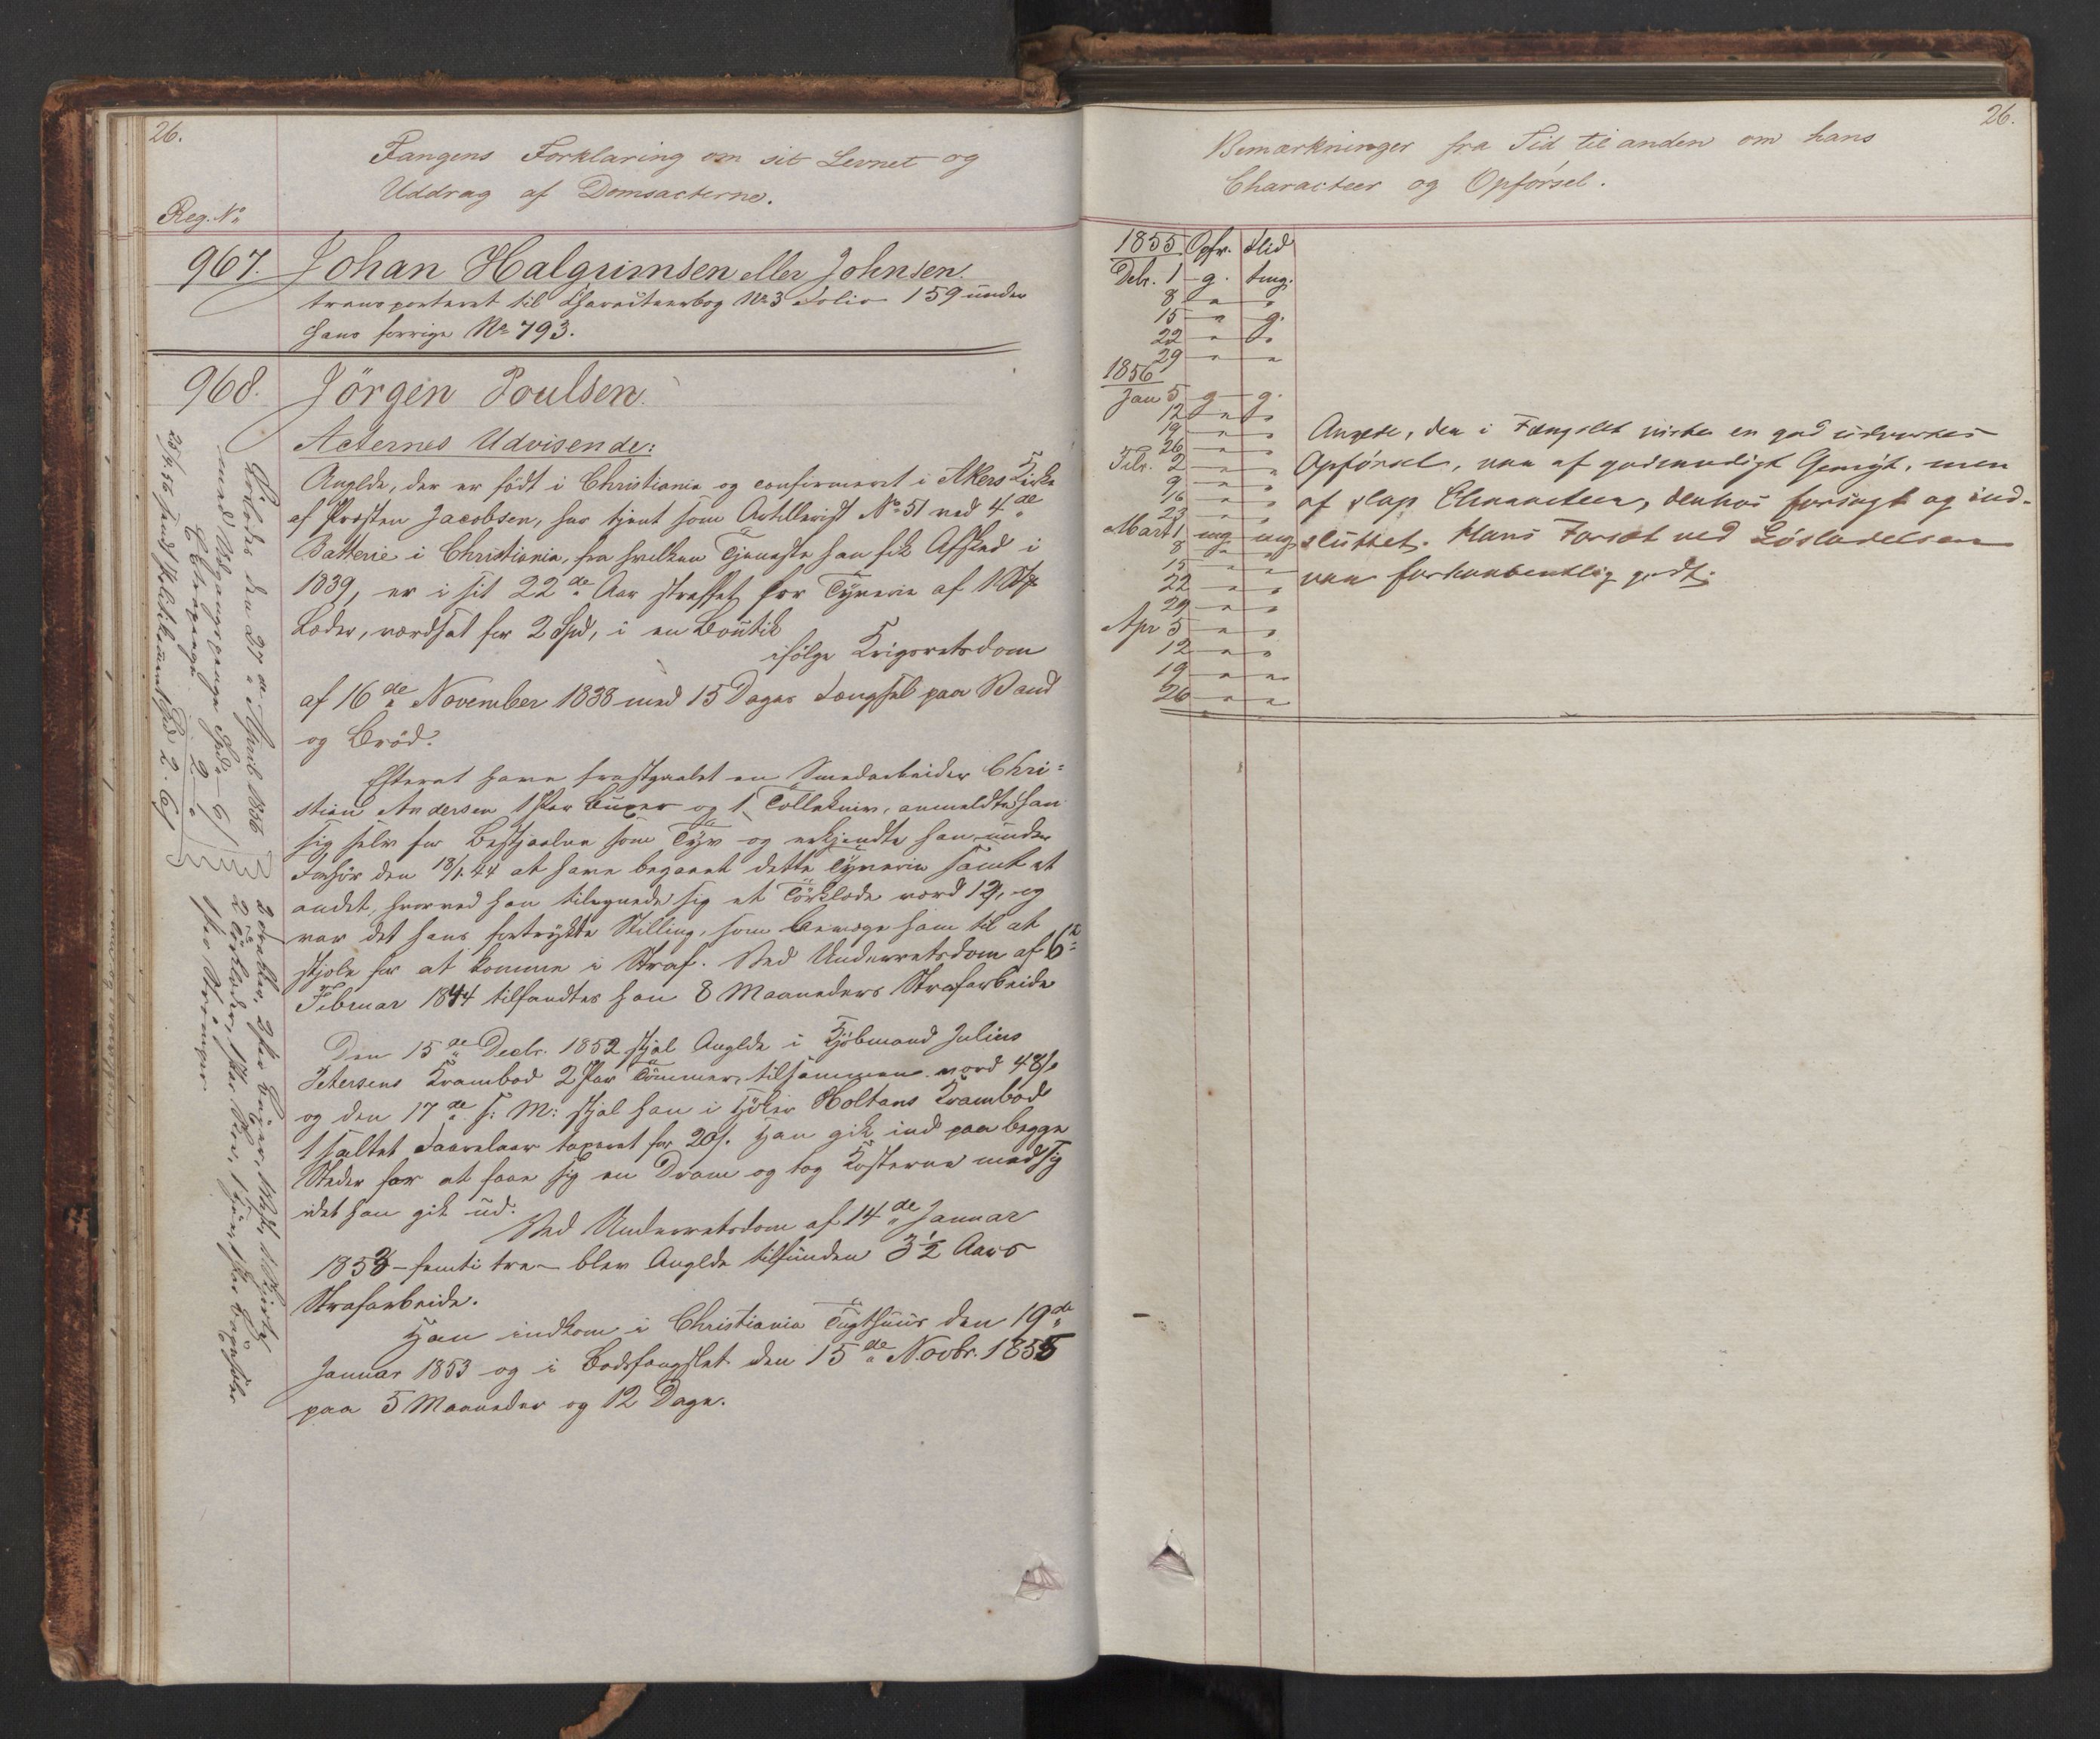 26.
Fangens Forklaring om sit Levnet og
Uddrag af Domsacterne.
Reg. No
967. Johan Halgrimsen eller Johnsen.
transporteret til Characteerbog No 3 Folio 159 under
hans forrige No 793.
968. Jörgen Poulsen.
Acternes Udvisende:
Anglde, der er født i Christiania og confirmeret i Akers Kirke
af Provsten Jacobsen, har tjent som Artillerist No 51 ved 4de
Batterie i Christiania, fra hvilken Tjeneste han fik Afsked i
1839, er i sit 22de Aar straffet for Tyverie af 1 St
Læder, værdsat for 2 Spd, i en Boutik
ifölge Krigsretsdom
af 16de November 1838 med 15 Dages Fængsel paa Vand
og Bröd.
Efterat have frastjaalet en Smedarbeider Chri=
stian Andersen 1 Par Buxer og 1 Tollekniv, anmeldte han
sig selv for Bestjaalne som Tyv og erkjendte han under
Forhör den 18/1 44 at have begaaet dette Tyverie samt et
andet, hvorved han tilegnede sig et Törklæde værd 12 , og
var det hans fortrykte Stilling, som bevæge ham til at
stjæle for at komme i Straf. Ved Underretsdom af 6te
Februar 1844 tilfandtes han 8 Maaneders Strafarbeide
Den 15de Decbr. 1852 stjal Anglde i Kjöbmand Julius
Petersens Krambod 2 Par Tömmer, tilsammen værd 48 s
og den 17de s: M: stjal han i Höker Holtans Krambod
1 saltet Faarelaar taxeret for 20 s. Han gik ind paa begge
Steder for at faae sig en Dram og tog Kosterne med sig
idet han gik ud.
Ved Underretsdom af 14de Januar
1853 - femti tre - blev Anglde tilfunden 3 1/2 Aars
Strafarbeide.
Han indkom i Christiania Tugthuus den 19de
Januar 1853 og i Bodsfængslet den 15de Novbr. 1855
paa 5 Maaneder og 12 Dage.
Lösladt den 27de April 1856
med Udgangspenge Spd
Eterpenge
2 Törklæder, 1 Par Skoe, 1
Par Strömper.
26.
Bemærkninger fra Tid til anden om hans
Characteer og Opförsel.
1855 Opfr. Flid
Debr. 1 g. tmg.
8 " "
15 " g.
22 " "
29 " "
1856
Jan 5 g g.
12 " "
19 " "
26 " "
Febr. 2 " "
9 " "
16 " "
23 " "
Mart 1 mg mg
8 " "
15 " "
22 " "
29 " "
Apr 5 " "
12 " "
19 " "
26 " "
Anglde, der i Fængslet viste en god udvortes
Opförsel, var af godmodigt Gemyt, men
af slap Characteer, derhos forsagt og ind-
sluttet. Hans Forsæt ved Lösladelsen
var forhaabentlig godt.